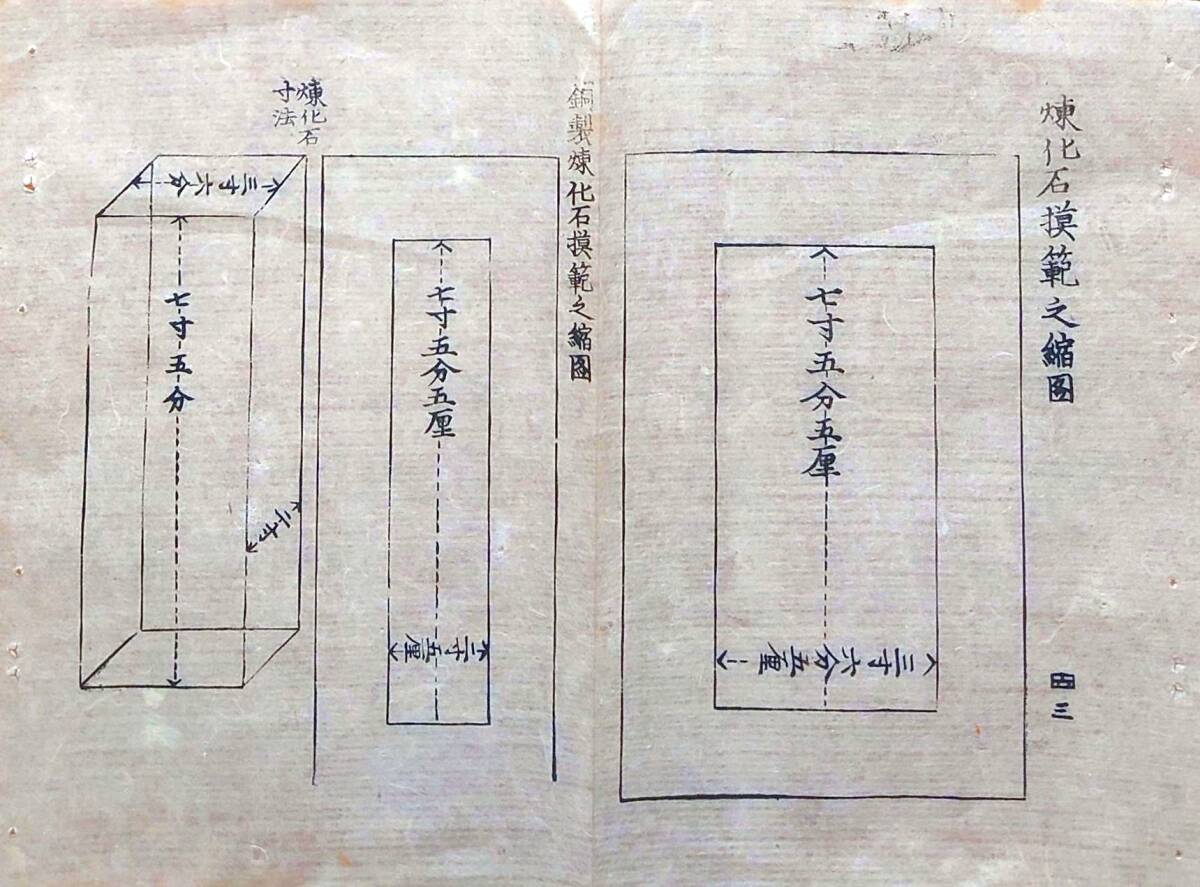 煉化石摸範之縮圖
三
七寸五分五厘
三寸六分五厘
銅製煉化石摸範之縮圖
七寸五分五厘
二寸五厘
煉化石
寸法
三寸六分
七寸五分
二寸